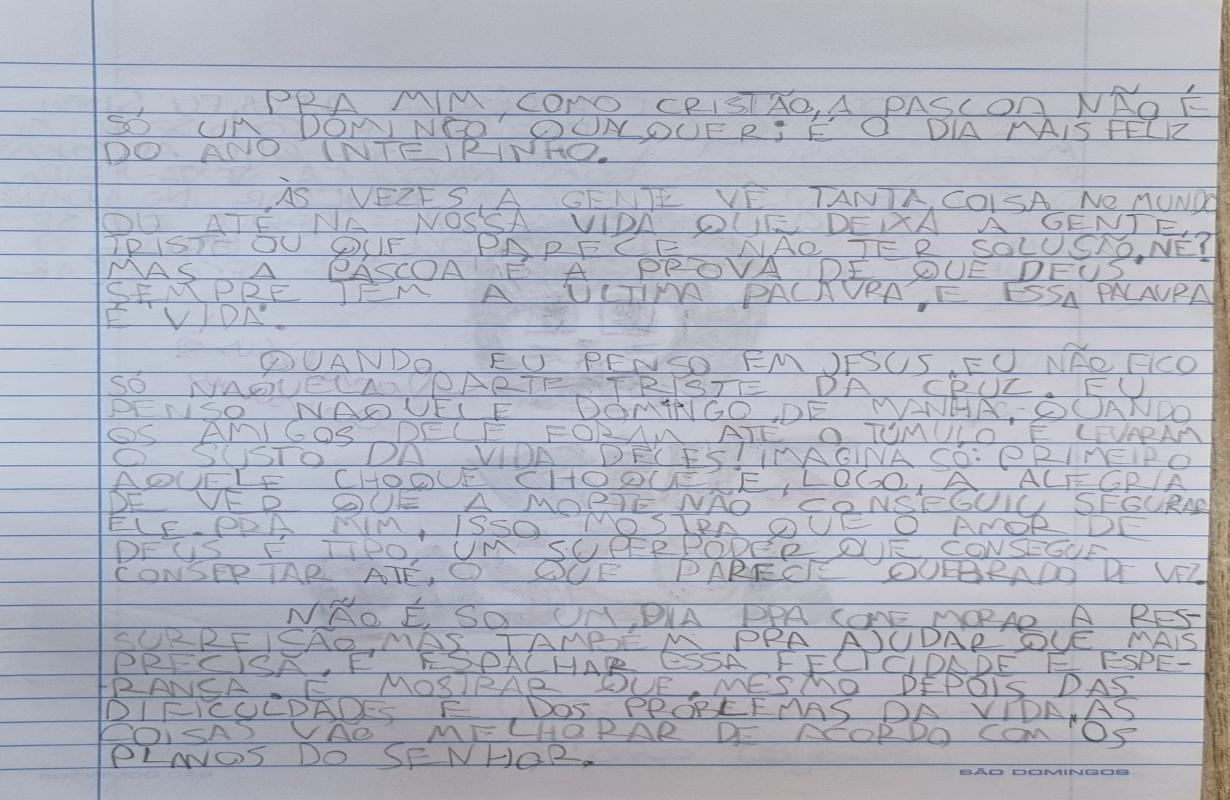 PRA MIM, COMO CRISTÃO, A PASCOA NÃO É
SÓ UM DOMINGO QUALQUER; É O DIA MAIS FELIZ
DO ANO INTEIRINHO.
ÀS VEZES, A GENTE VÊ TANTA COISA NO MUNDO
OU ATÉ NA NOSSA VIDA QUE DEIXA A GENTE
TRISTE OU QUE PARECE NÃO TER SOLUÇÃO, NÉ?
MAS A PÁSCOA É A PROVA DE QUE DEUS
SEMPRE TEM A ÚLTIMA PALAVRA, E ESSA PALAVRA
É VIDA.
QUANDO EU PENSO EM JESUS, EU NÃO FICO
SÓ NAQUELA PARTE TRISTE DA CRUZ. EU
PENSO NAQUELE DOMINGO DE MANHÃ, QUANDO
OS AMIGOS DELE FORAM ATÉ O TÚMULO E LEVARAM
O SUSTO DA VIDA DELES! IMAGINA SÓ: PRIMEIRO
AQUELE CHOQUE CHOQUE E, LOGO, A ALEGRIA
DE VER QUE A MORTE NÃO CONSEGUIU SEGURAR
ELE. PRA MIM, ISSO MOSTRA QUE O AMOR DE
DEUS É TIPO UM SUPERPODER QUE CONSEGUE
CONSERTAR ATÉ O QUE PARECE QUEBRADO DE VEZ.
NÃO É SO UM DIA PRA COMEMORAR A RES-
SURREIÇÃO, MAS TAMBÉM PRA AJUDAR QUE MAIS
PRECISA, E ESPALHAR ESSA FELICIDADE E ESPE-
RANÇA. E MOSTRAR QUE, MESMO DEPOIS DAS
DIFICULDADES E DOS PROBLEMAS DA VIDA, AS
COISAS VÃO MELHORAR DE ACORDO COM OS
PLANOS DO SENHOR.
SÃO DOMINGOS